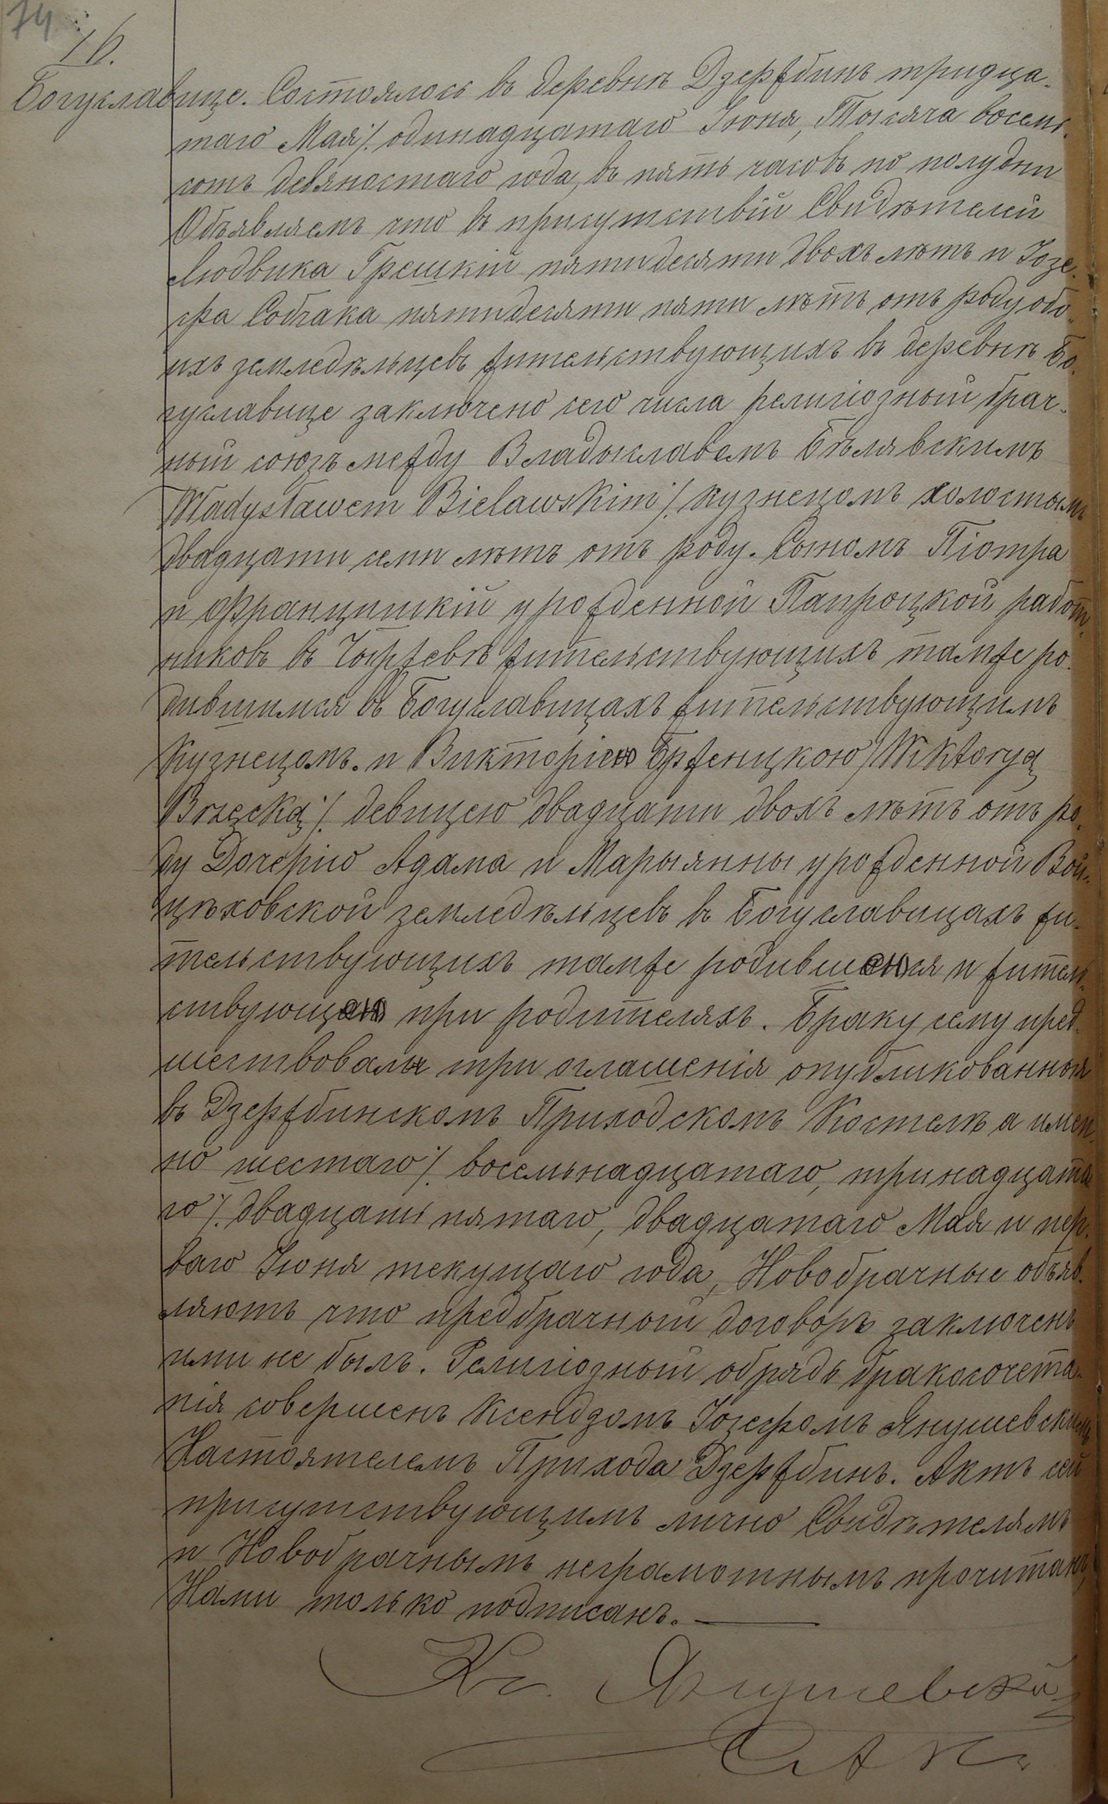 74
16.
Богуславице. Состоялось въ деревнѣ Дзержбинъ тридца-
таго Мая/ одинадцатаго Іюня, Тысяча восемь-
сотъ девяностаго года, въ пять часовъ по полудни
Объявляемъ что въ присутствіи Свидѣтелей
Людвика Грешкій пятидесяти двохъ лѣтъ и Іозе-
фа Собчака пятидесяти пяти лѣтъ отъ роду обо-
ихъ земледѣльцевъ жительствующихъ въ деревнѣ Бо-
гуславице заключено сего числа религіозный брач-
ный союзъ между Владыславомъ Бѣлявскимъ
/Władysławem Bielawskim/ кузнецомъ холостымъ
двадцати семи лѣтъ отъ роду. Сыномъ Піотра
и Францишкій урожденной Папроцкой работ-
никовъ въ жительствующихъ тамже ро-
дившимся въ Богуславицахъ жительствующимъ
Кузнецомъ. и Викторіею Бржеицкою /Wiktoryą
Brzęcką/ девицею двадцати двохъ лѣтъ отъ ро-
ду Дочерію Адама и Марыянны урожденной Вой-
цѣховской земледѣльцевъ въ Богуславицахъ жи-
тельствующихъ тамже родившеюся и житель-
ствующею при родителяхъ. Браку сему пред-
шествовали три оглашенія опубликованныя
въ Дзержбинскомъ Приходскомъ Костелѣ а имен-
но шестаго/ восемьнадцатаго, тринадцата-
го/ двадцать пятаго, двадцатаго Мая и пер-
ваго Іюня текущаго года, Новобрачные объяв-
ляютъ что предбрачный договоръ заключенъ
ими не былъ. Религіозный обрядъ бракосочета-
нія совершенъ Ксендзомъ Іозефомъ Янушевскимъ
Настоятелемъ Прихода Дзержбинъ. Актъ сей
присутствующимъ лично Свидѣтелямъ
и Новобрачнымъ неграмотнымъ прочитанъ,
Нами только подписанъ.
Кс. Янушевскій